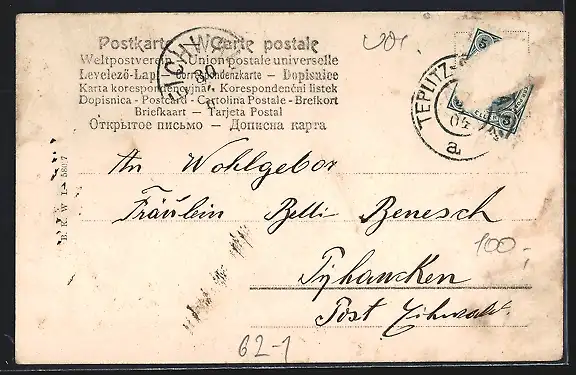 Postkarte Carte postale
Weltpostverein Union postale universelle
Levelező-Lap Correspondenzkarte — Dopisnice
Karta korespondencyjna Korespondenční listek
Dopisnica - Postcard - Cartolina Postale - Brefkort
Briefkaart — Tarjeta Postal
Открытое письмо — Дописна карта
30
TEPLITZ-
04
a
5
5
An Wohlgebor
Fräulein Belli Benesch
100.-
Post
B. K. W. I.
62-1